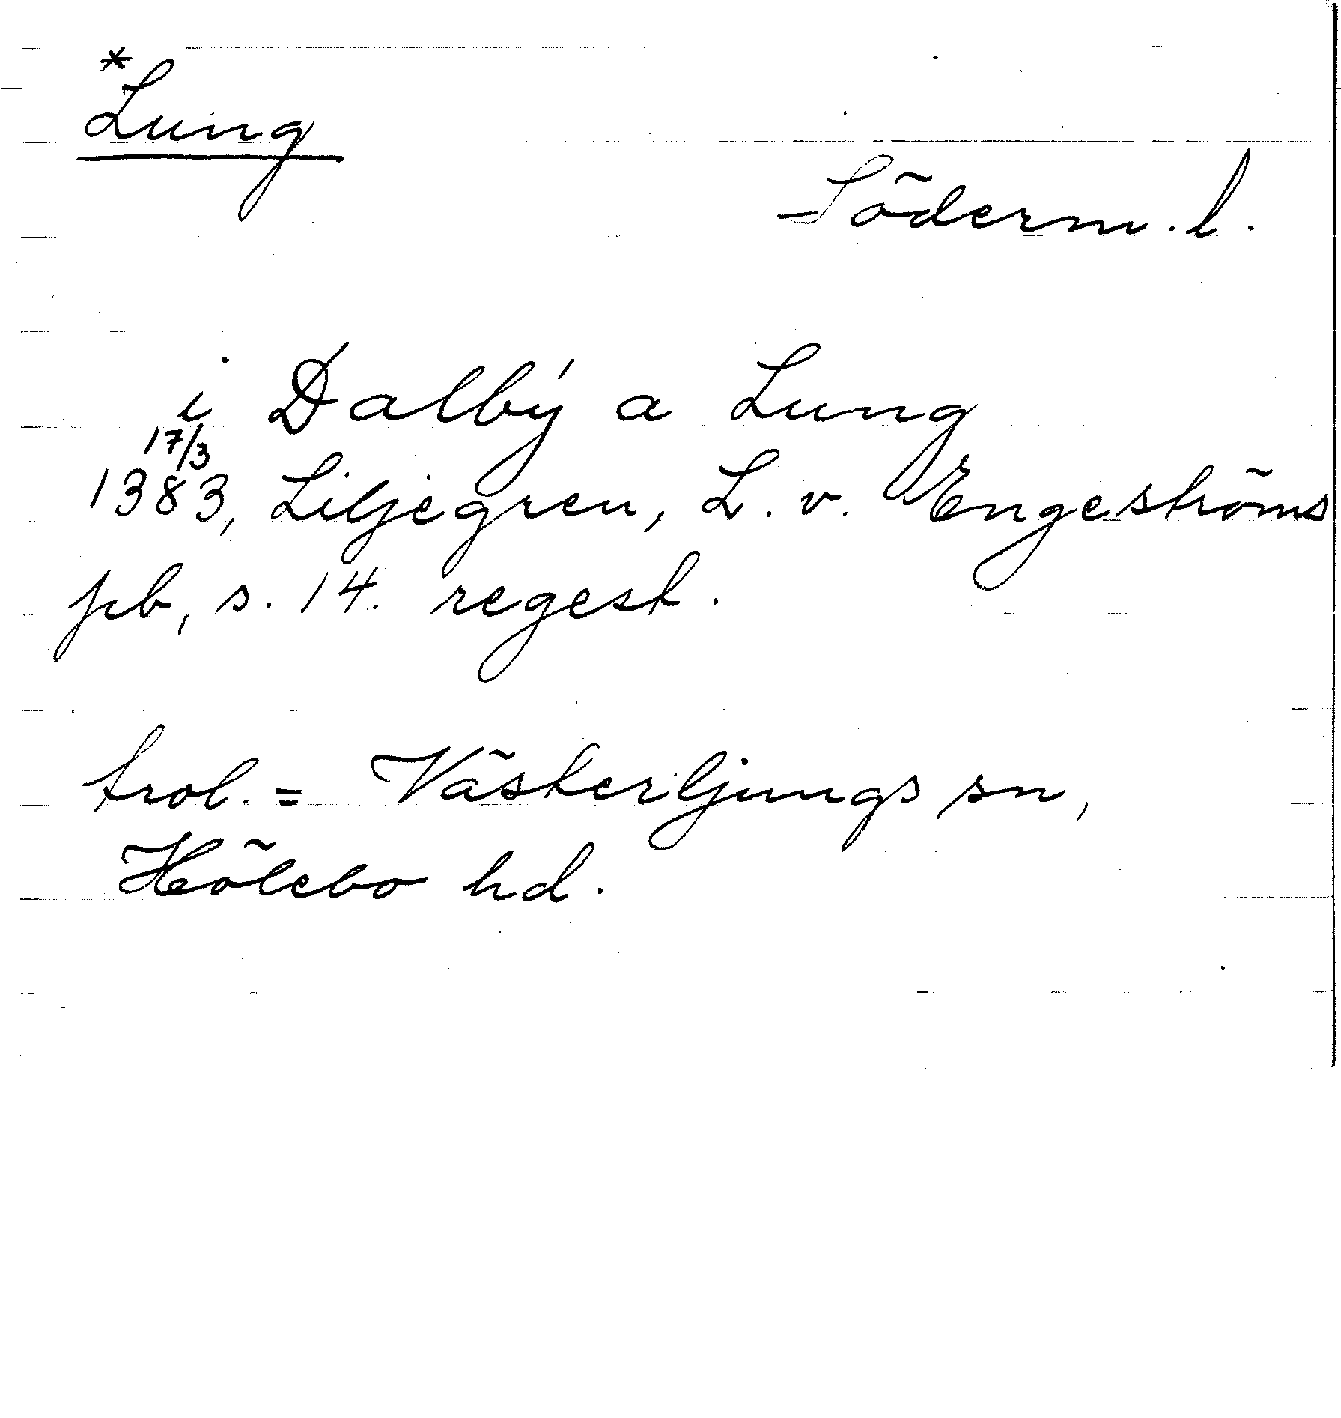 *
Lung
Söderm.l.
i Dalbý a Lung
17/3
1383, Liljegren, L. v. Engeströms
pb, s. 14. regest.
trol. = Västerljungs sn,
Hölebo hd.